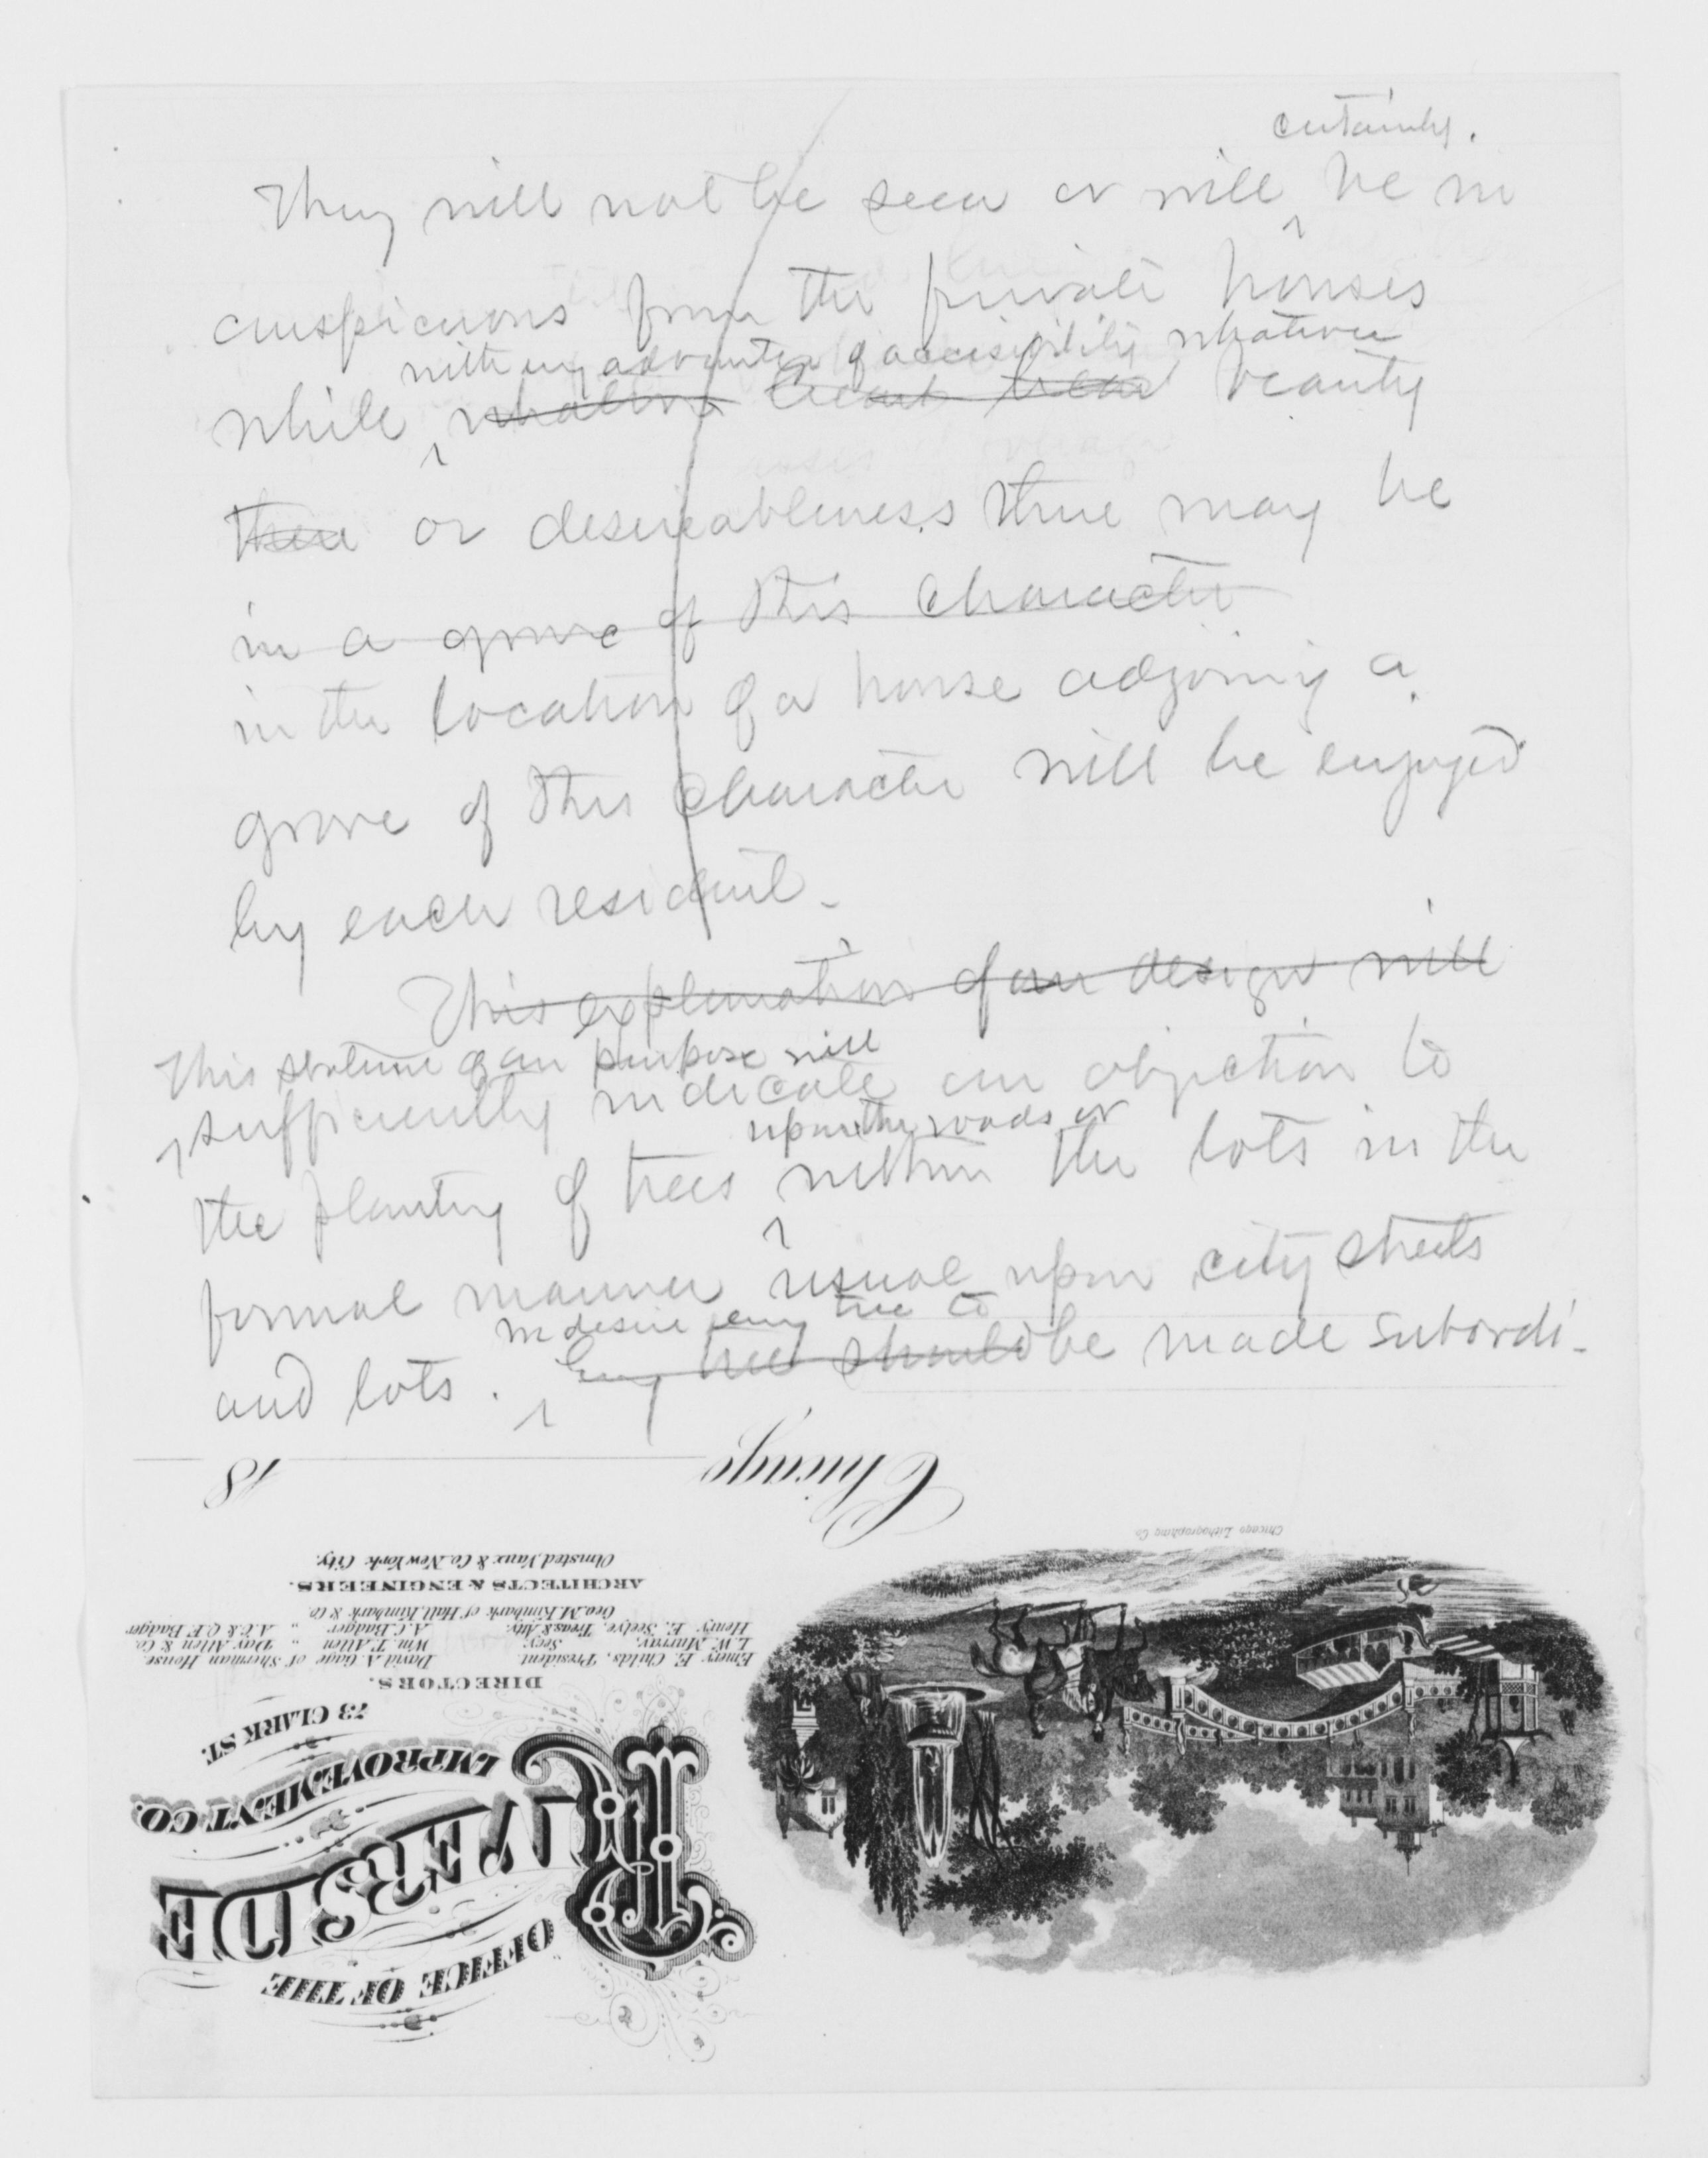 certainly.
They will not be seen or will be in
conspicuous from the private houses
with any advantage of accessibility whatever
while whatever beauty
there or desireableness there may be
in a grove of this character
in the location of a house adjoining a
grove of this character will be enjoyed
by each resident.
This explanation of our design will
This statement of our purpose will
sufficiently indicate our objection to
upon the roads or
the planting of trees within the lots in the
formal manner usual upon city streets
we desire every tree to
and lots. Every tree should be made subordi-
OFFICE OF THE
RIVERSIDE
IMPROVEMENT CO.
73 CLARK ST.
DIRECTORS.
Emery E. Childs, President. David A. Gage of Sherman House.
L.W. Murray, Secy. Wm. T. Allen " Day Allen & Co.
Henry E. Seelye, Treas & Atty. A.C. Badger " A.C. & O.F. Badger
Geo. M. Kimbark of Hall, Kimbark & Co.
ARCHITECTS & ENGINEERS.
Olmsted, Vaux & Co. New York City.
Chicago Lithographing Co.
Chicago 18